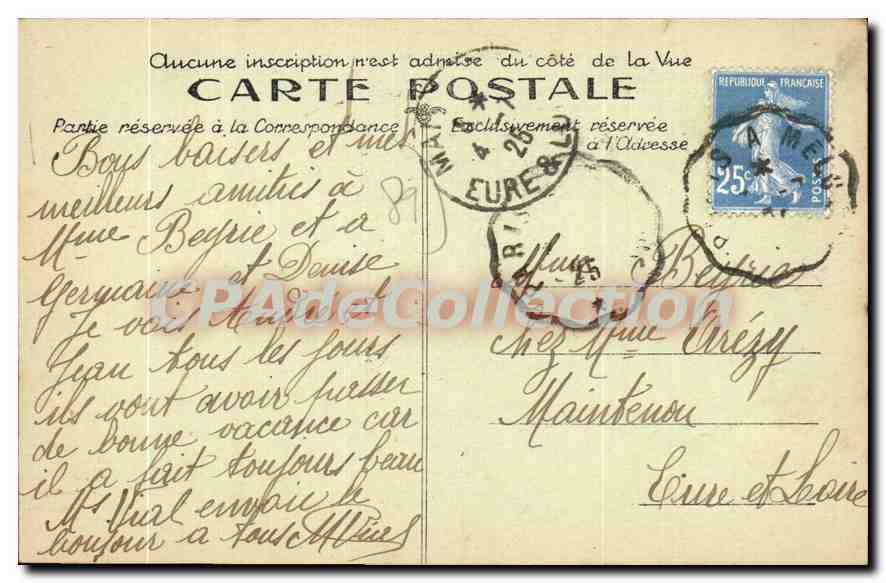 Aucune inscription n'est admise du côté de la Vue
CARTE POSTALE
Partie réservée à la Correspondance
Exclusivement réservée
à l'Adresse
REPUBLIQUE FRANÇAISE
25c
POSTES
EURE & L
4
25
25
89
Bons baisers et mes
meilleurs amitiés à
Mme Beyrie et a
Germaine et Denise
Je vois André et
Jean tous les jours
ils vont avoir passer
de bonne vacance car
il a fait toujours beau
Ms Vial envoie le
bonjour a tous
Mme Beyrie
chez Mme
Maintenon
Eure et Loire
CPAdeCollection